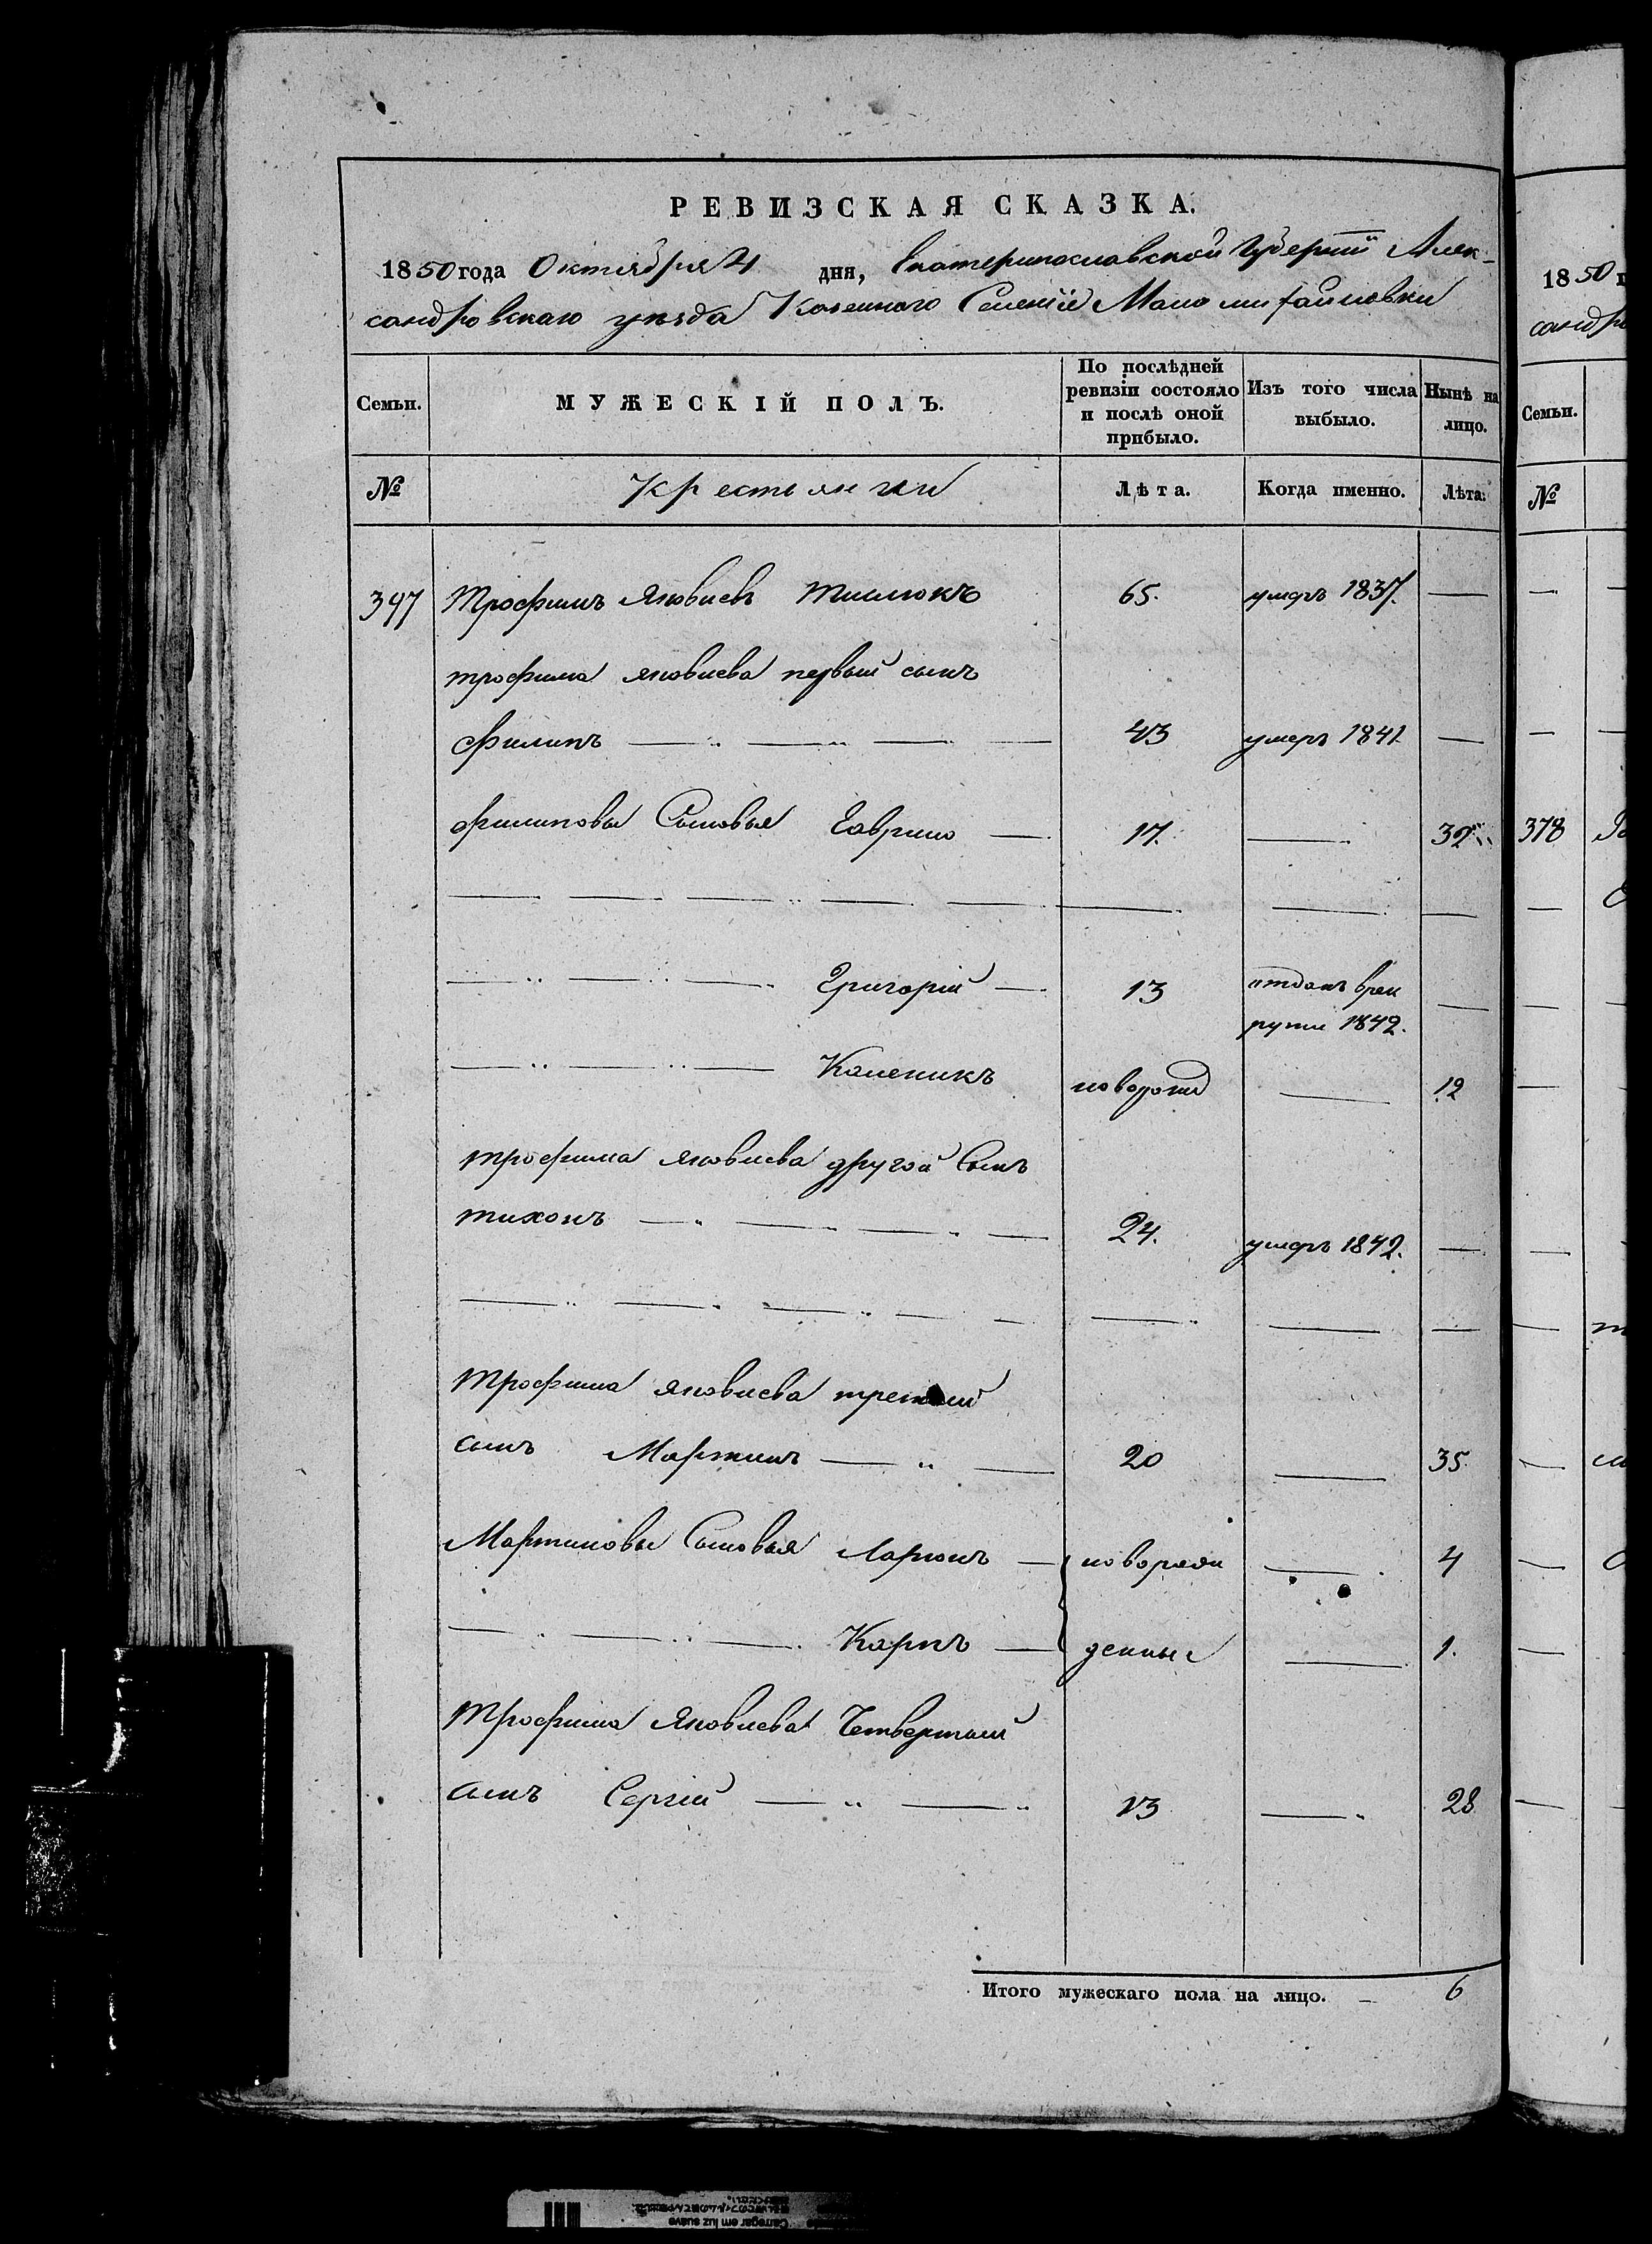 РЕВИЗСКАЯ СКАЗКА.
1850 года Октября 4 дня, Екатеринославской Губернiи Алек-
сандровскаго уѣзда Казеннаго Селенiе Маломихайловки
Семьи.
МУЖЕСКІЙ ПОЛЪ.
По послѣдней
ревизіи состояло
и послѣ оной
прибыло.
Изъ того числа
выбыло.
Нынѣ на
лицо.
№
Лѣта.
Когда именно.
Лѣта.
397 Трофимъ Яковлевъ 65. умеръ 1837. —
трофима яковлева первый сынъ
Филипъ — 43 умеръ 1841 —
филиповы Сыновья Гаврило — 17. — 32
Григорій — 13 отданъ врек
руты 1842. —
Каленикъ новорожд — 12
трофима яковлева другой Сынъ
тихонъ — 24. умеръ 1842. —
трофима яковлева третий
сынъ Мартинъ — 20 — 35
Мартиновы Сыновья Ларионъ — новорож — 4
Карпъ — денные — 1.
трофима Яковлева Четвертый
сынъ Сергій — 13 — 28
Итого мужескаго пола на лицо. — 6
1850 г
сандро
Семьи.
№
378